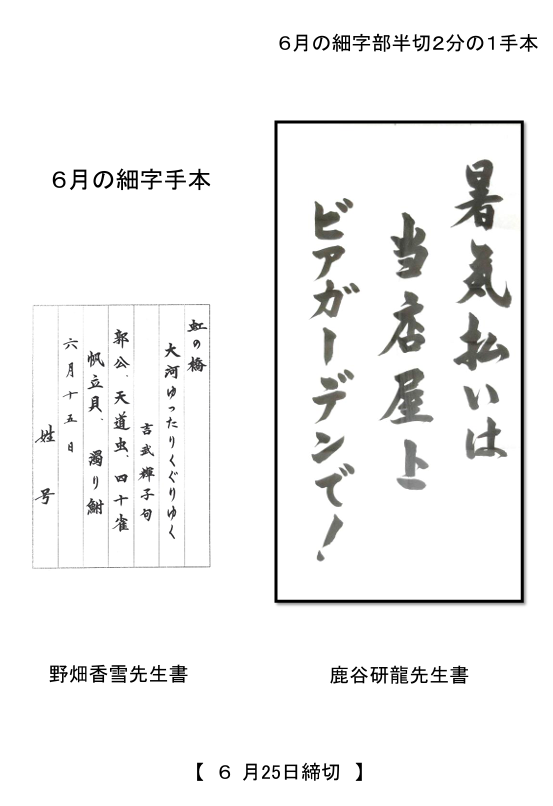 ６月の細字部半切２分の１手本
暑気払いは
当店屋上
ビアガーデンで！
鹿谷研龍先生書
６月の細字手本
虹の橋
大河ゆったりくぐりゆく
吉武輝子句
郭公、天道虫、四十雀
帆立貝、濁り鮒
六月十五日
姓号
野畑香雪先生書
【 ６ 月25日締切 】